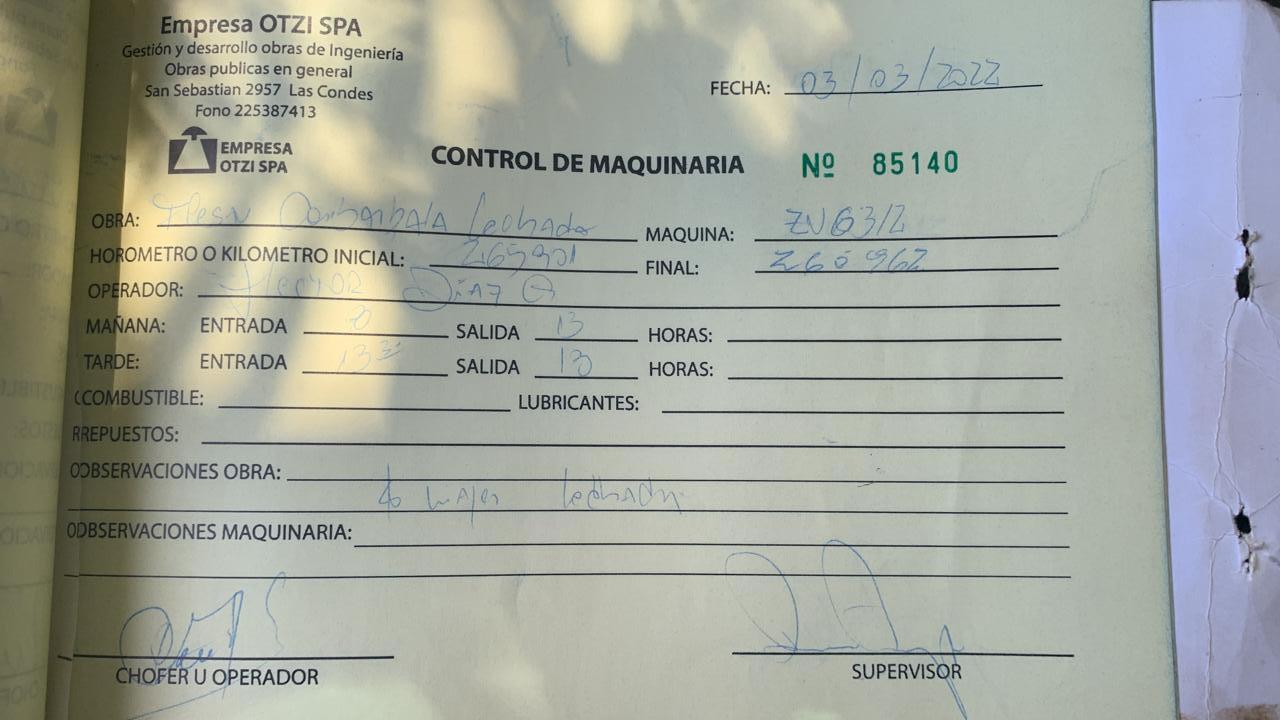 Empresa OTZI SPA
Gestión y desarrollo obras de Ingeniería
Obras publicas en general
San Sebastian 2957 Las Condes
Fono 225387413
EMPRESA
OTZI SPA
FECHA: 03/03/2022
CONTROL DE MAQUINARIA Nº 85140
OBRA: lechador MAQUINA:
HOROMETRO O KILOMETRO INICIAL: FINAL:
OPERADOR: Hector Diaz G
MAÑANA: ENTRADA 8 SALIDA 13 HORAS:
TARDE: ENTRADA 13 30 SALIDA 18 HORAS:
COMBUSTIBLE: LUBRICANTES:
REPUESTOS:
OBSERVACIONES OBRA:
OBSERVACIONES MAQUINARIA:
CHOFER U OPERADOR SUPERVISOR